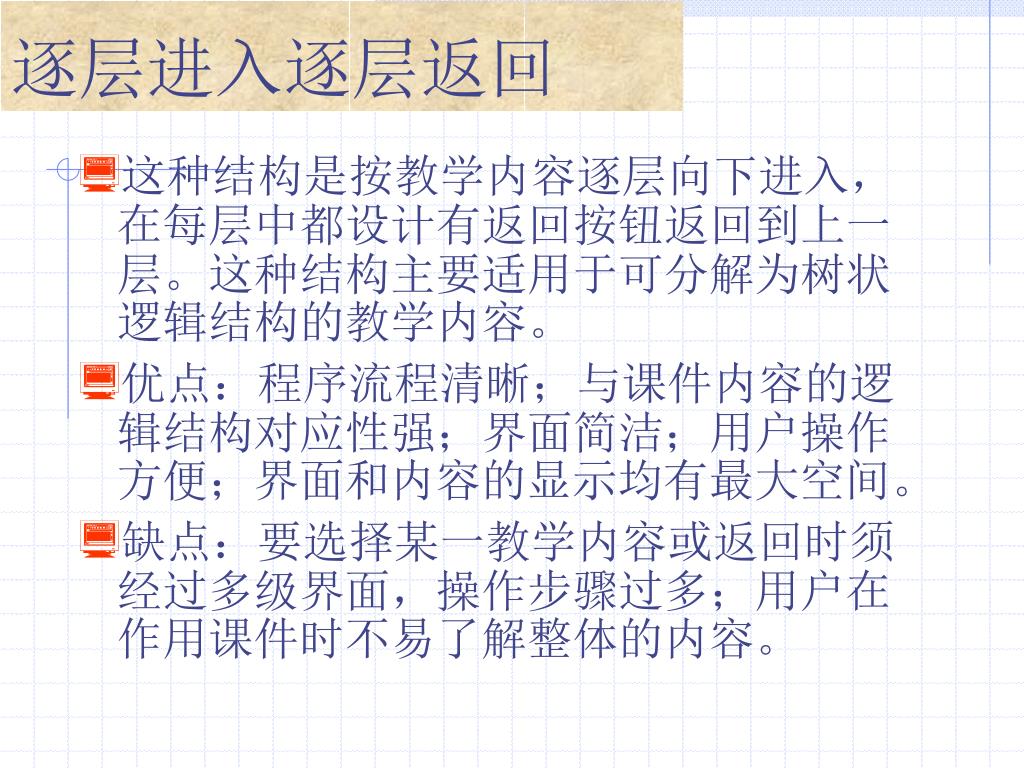 逐层进入逐层返回
这种结构是按教学内容逐层向下进入，
在每层中都设计有返回按钮返回到上一
层。这种结构主要适用于可分解为树状
逻辑结构的教学内容。
优点：程序流程清晰；与课件内容的逻
辑结构对应性强；界面简洁；用户操作
方便；界面和内容的显示均有最大空间。
缺点：要选择某一教学内容或返回时须
经过多级界面，操作步骤过多；用户在
作用课件时不易了解整体的内容。